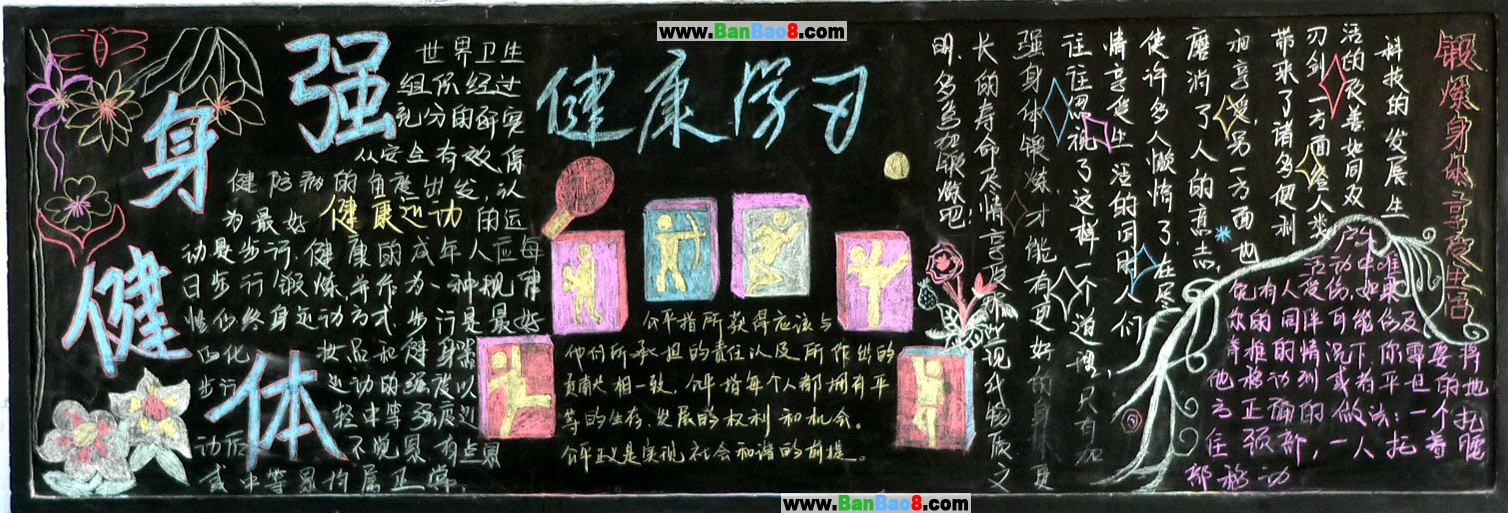 www.BanBao8.com
强
身
健
体
世界卫生
组织经过
充分的研究
从安全有效保
健防病的角度出发,认
为最好 健康运动 的运
动是步行.健康的成年人应每
日步行锻炼,并作为一种规律
性的终身运动方式.步行是最好
的化 妆品和健身器
步行 运动的强度以
轻中等强度运
动后 不觉累 有点累
或中等累均属正常.
健康学习
公平指所获得应该与
他们所承担的责任以及所作出的
贡献相一致.公平指每个人都拥有平
等的生存.发展的权利和机会。
公平正义是实现社会和谐的前提。
锻炼身体享受生活
科技的发展生
活的改善如同双
刃剑一方面给人类
带来了诸多便利
和享受,另一方面也
磨消了人的意志,
使许多人懒惰了.在尽
情享受生活的同时人们
往往忽视了这样一个道理,只有加
强身体锻炼.才能有更好的身体更
长的寿命尽情享受那些现代物质文
明.多多加锻炼吧!
户外
活动中难
免有人受伤,如果
你的同伴可能伤及
脊椎的情况下,你需要将
他移动到或者平坦的地
方正确的做法:一个托
住颈部,一人托着腰
部移动
www.BanBao8.com